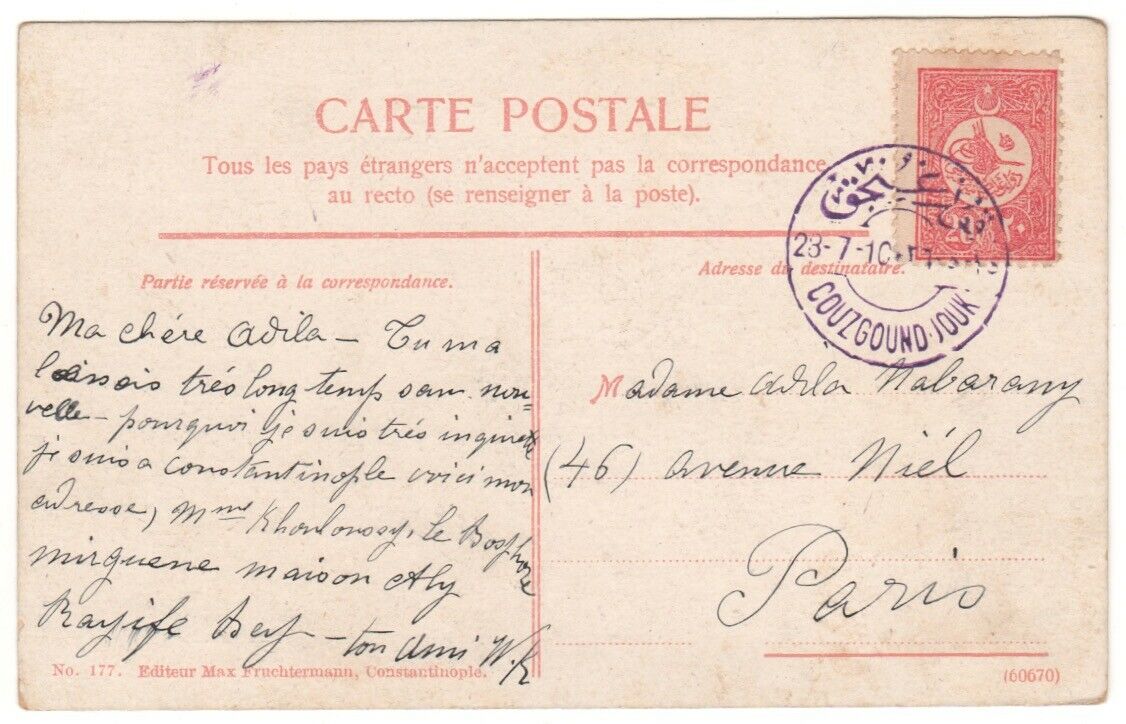 CARTE POSTALE
Tous les pays étrangers n'acceptent pas la correspondance
au recto (se renseigner à la poste).
28-7-10
COUZGOUND-JOUK
Partie réservée à la correspondance.
Ma chére Adila — Tu m a
laissais trés long temps san nou=
velle — pourquoi je suis trés inquiete
je suis a Constantinople voici mon
adresse, Mme Khouloussy, le Bosphore
mirguene maison Aly
Rayife Bey — ton Ami W.R
Adresse du destinataire.
Madame Adila Nabarany
(46) avenue Niél
Paris
No. 177. Editeur Max Fruchtermann, Constantinople.
(60670)